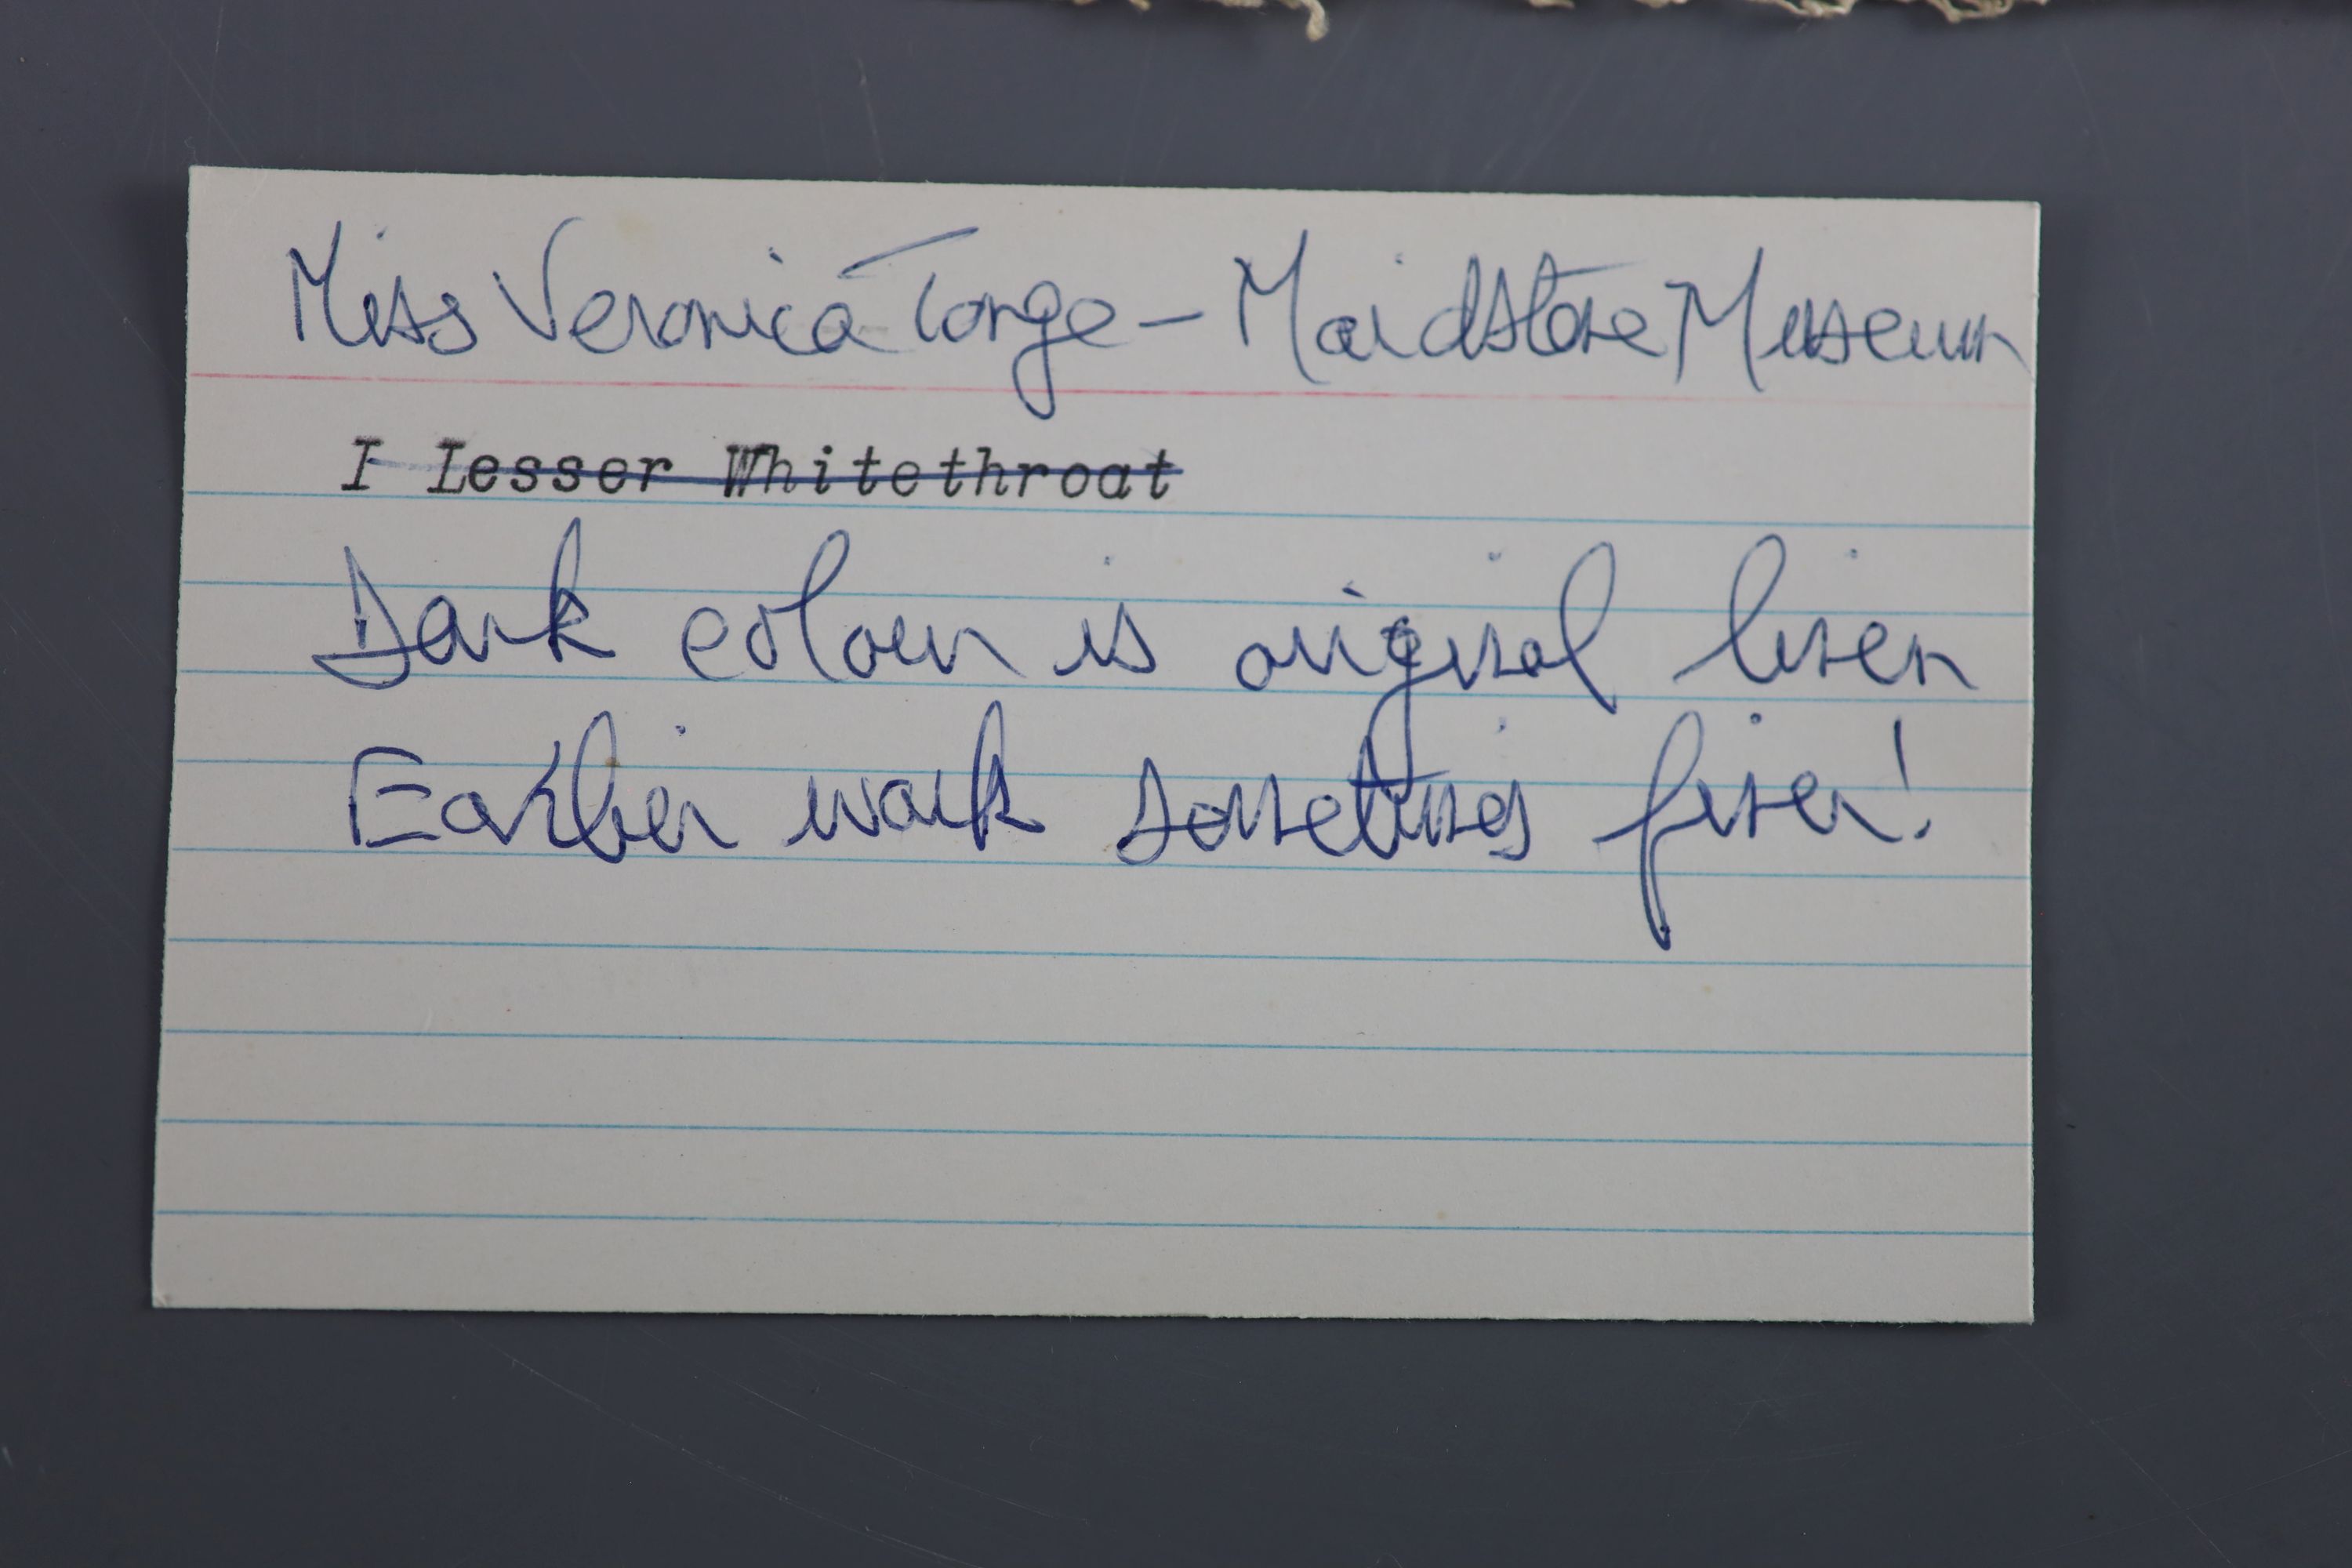 Miss Veronica Tonge - Maidstone Museum
I Lesser Whitethroat
Dark colour is original linen
Earlier work sometimes finer!